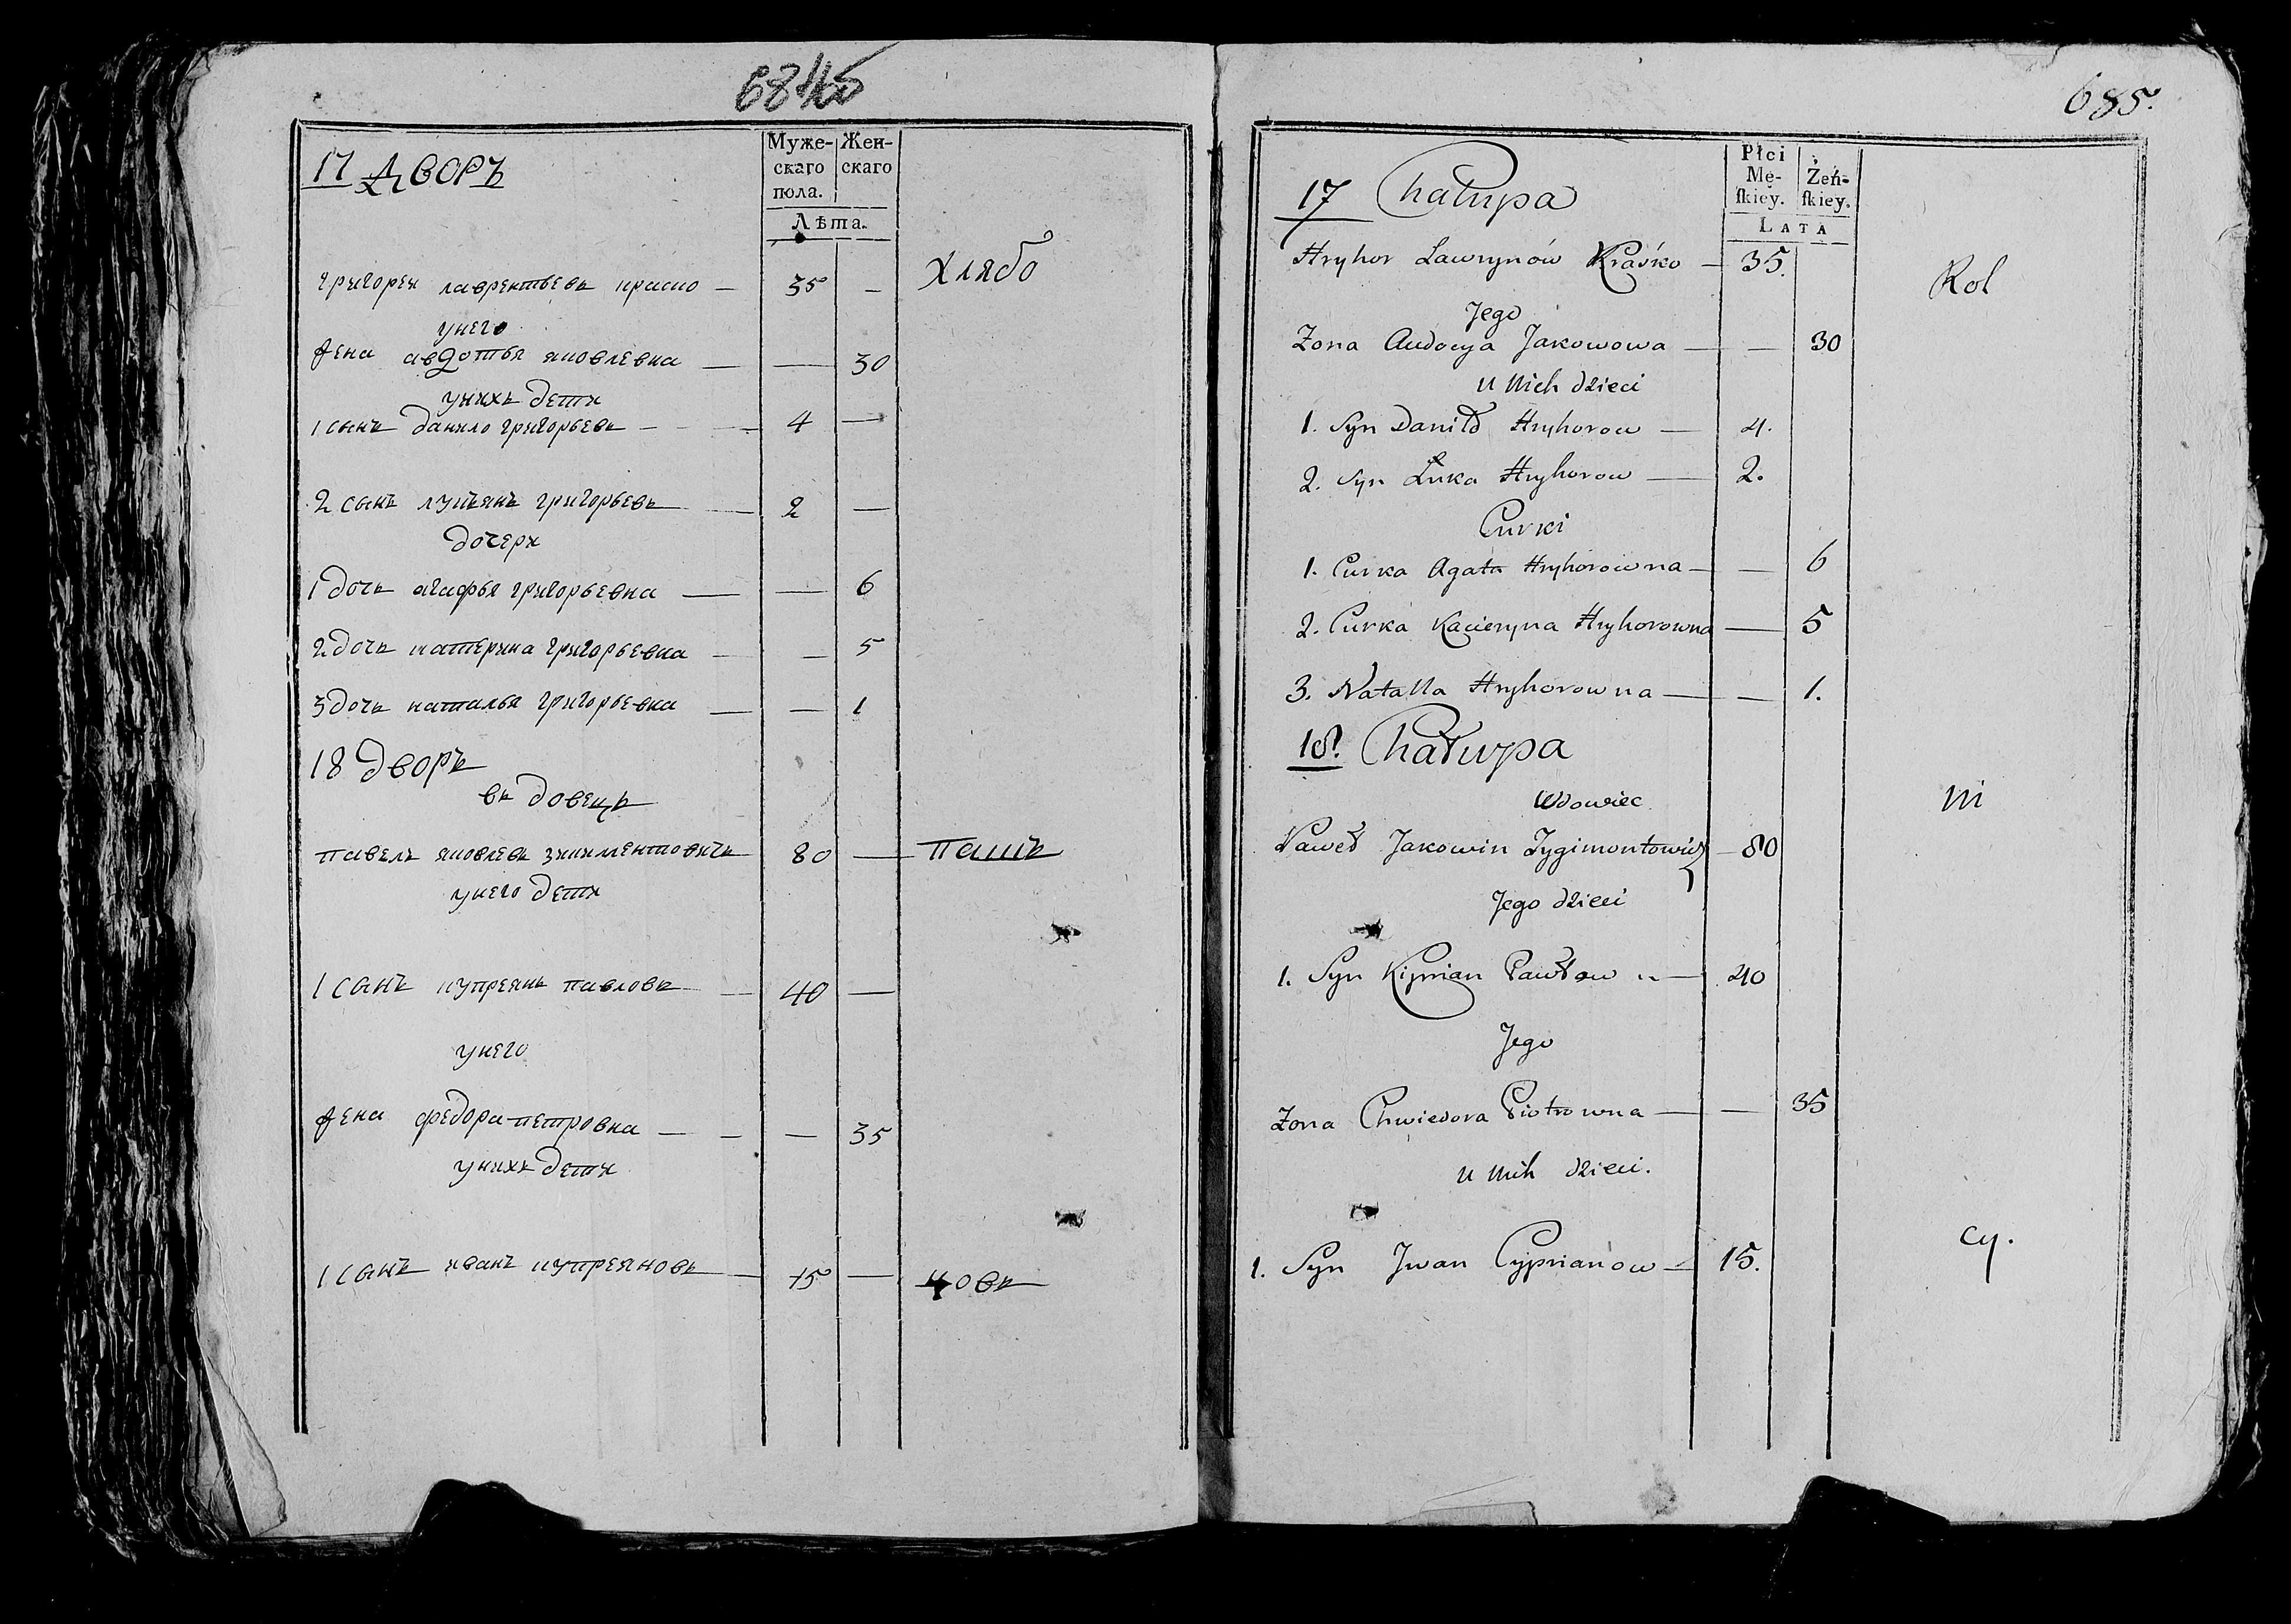 685.
17 ДВОРЪ
Муже- Жен-
скаго скаго
пола.
Лѣта.
григорен лаврентьевъ краско — 35 — хлябо
унего
жена авдотья яковлевна — — 30
унихъ дети
1 сынъ данило григорьевъ — 4 —
2 сынъ лукъянъ григорьевъ — 2 —
дочери
1 дочь агафья григорьевна — — 6
2 дочь катерина григорьевна — — 5
3 дочь наталья григорьевна — — 1
18 дворъ
въ довецъ
павелъ яковлевъ зикиментовичъ 80 — пашъ
унего дети
1 сынъ купреянъ павловъ — 40 —
унего
жена федора петровна — — — 35
унихъ дети
1 сынъ иванъ купреяновъ — 15 — цовъ
17 Chałupa
Płci Żeń-
Mę- ſkiey.
ſkiey.
LATA
Hryhor Lawrynów Kraśko — 35. Rol
Jego
Zona Audocya Jakowowa — — 30
u Nich dzieci
1. Syn Daniło Hryhorow — 4.
2. Syn Łuka Hryhorow — 2.
Curki
1. Curka Agata Hryhorowna — — 6
2. Curka Kacieryna Hryhorowna — 5
3. Natalla Hryhorowna — — 1.
18. Chałupa
Wdowiec ni
Paweł Jakowin Zygimontowicz — 80
Jego dzieci
1. Syn Kiprian Pawłow — 40
Jego
Zona Chwiedora Piotrowna — — 35
u Nich dzieci.
1. Syn Jwan Cyprianow — 15. cy.